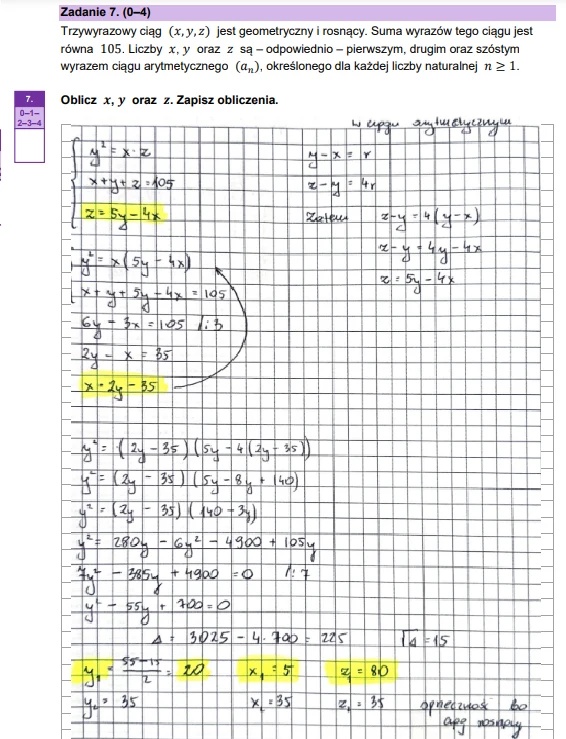 Zadanie 7. (0–4)
Trzywyrazowy ciąg (x, y, z) jest geometryczny i rosnący. Suma wyrazów tego ciągu jest
równa 105. Liczby x, y oraz z są – odpowiednio – pierwszym, drugim oraz szóstym
wyrazem ciągu arytmetycznego (aₙ), określonego dla każdej liczby naturalnej n ≥ 1.
7.
0–1–
2–3–4
Oblicz x, y oraz z. Zapisz obliczenia.
w ciągu arytmetycznym
y² = x · z
y – x = r
x + y + z = 105
z – y = 4r
z = 5y – 4x
Zatem z – y = 4(y – x)
z – y = 4y – 4x
z = 5y – 4x
y² = x(5y – 4x)
x + y + 5y – 4x = 105
6y – 3x = 105 /:3
2y – x = 35
x = 2y – 35
y² = (2y – 35)(5y – 4(2y – 35))
y² = (2y – 35)(5y – 8y + 140)
y² = (2y – 35)(140 – 3y)
y² = 280y – 6y² – 4900 + 105y
7y² – 385y + 4900 = 0 /:7
y² – 55y + 700 = 0
Δ = 3025 – 4·700 = 225 √Δ = 15
y₁ = (55–15)/2 = 20 x₁ = 5 z₁ = 80
y₂ = 35 x₂ = 35 z₁ = 35 sprzeczność bo
ciąg rosnący